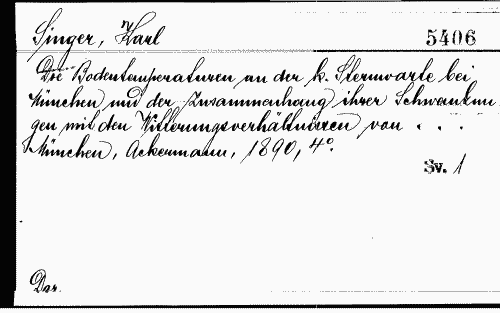 Singer, Karl 5406
Die Bodentemperaturen an der k. Sternwarte bei
München und der Zusammenhang ihrer Schwankun
gen mit den Witterungsverhältnissen von . . .
München, Ackermann, 1890, 4°.
Sv. 1
Dar.